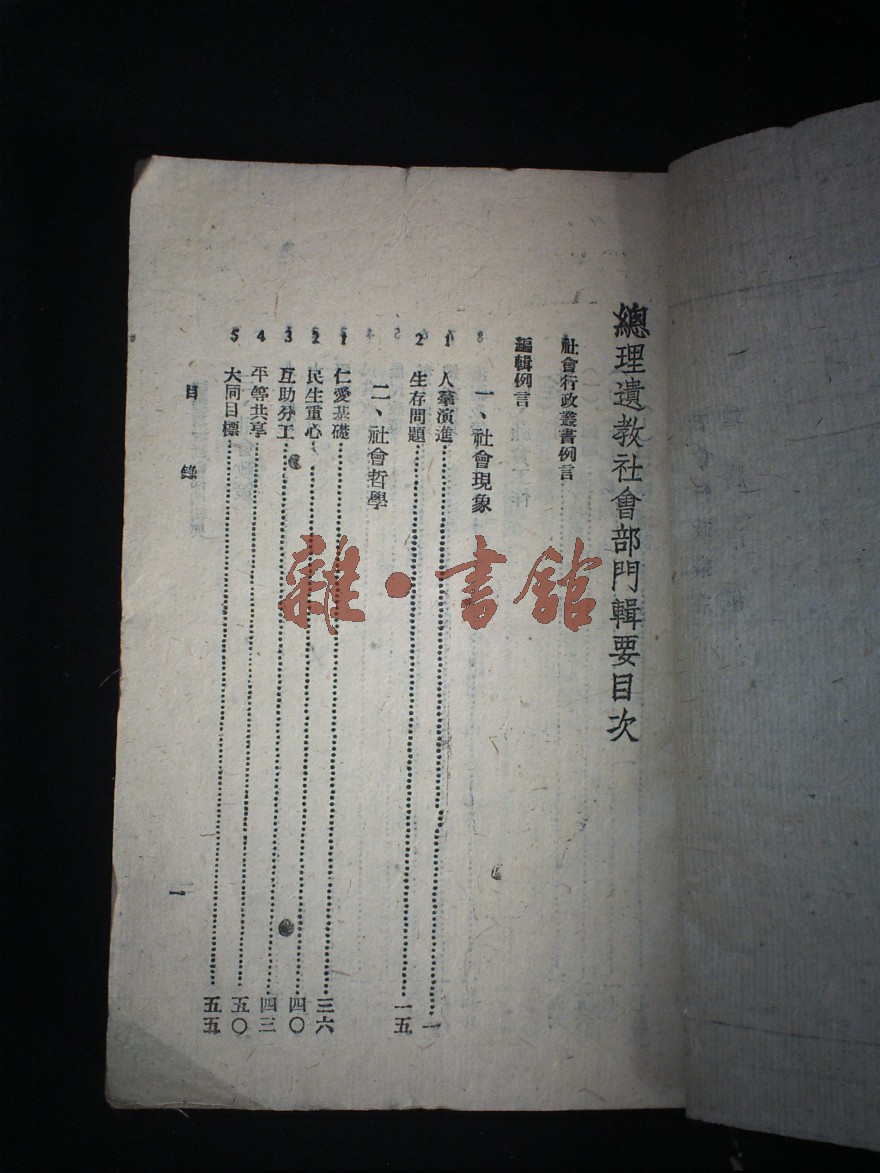 總理遺教社會部門輯要目次
社會行政叢書例言
編輯例言
一、社會現象
1 人羣演進 一
2 生存問題 一五
二、社會哲學
1 仁愛基礎 三六
2 民生重心 四〇
3 互助分工 四三
4 平等共享 五〇
5 大同目標 五五
目錄
一
雜·書館